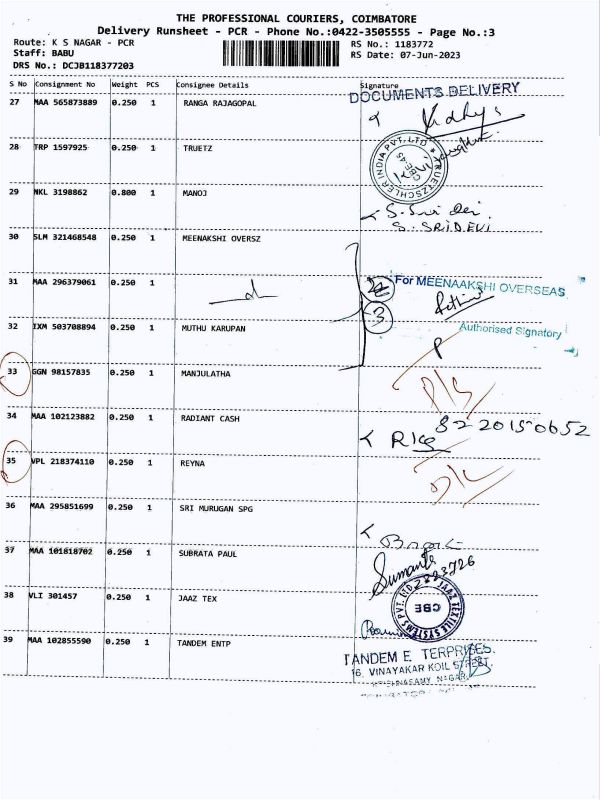 THE PROFESSIONAL COURIERS, COIMBATORE
Delivery Runsheet - PCR - Phone No.:0422-3505555 - Page No.:3
Route: K S NAGAR - PCR
RS No.: 1183772
Staff: BABU
RS Date: 07-Jun-2023
DRS No.: DCJB118377203
S No Consignment No Weight PCS Consignee Details Signature
DOCUMENTS DELIVERY
27 MAA 565873889 0.250 1 RANGA RAJAGOPAL
Vidhys
28 TRP 1597925 0.250 1 TRUETZ
TRUETZSCHLER INDIA PVT. LTD.
29 NKL 3198862 0.800 1 MANOJ
S. Sri devi.
S. SRIDEVI
30 SLM 321468548 0.250 1 MEENAKSHI OVERSZ
31 MAA 296379061 0.250 1
For MEENAAKSHI OVERSEAS
3
32 IXM 503708894 0.250 1 MUTHU KARUPAN
Authorised Signatory
33 GGN 98157835 0.250 1 MANJULATHA
34 MAA 102123882 0.250 1 RADIANT CASH
35 VPL 218374110 0.250 1 REYNA
36 MAA 295851699 0.250 1 SRI MURUGAN SPG
37 MAA 101818702 0.250 1 SUBRATA PAUL
Sumanth
38 VLI 301457 0.250 1 JAAZ TEX
JAAZ TEXTILE SYSTEMS PVT. LTD.
CBE
39 MAA 102855590 0.250 1 TANDEM ENTP
TANDEM E TERPRISES.
16, VINAYAKAR KOIL STREET,